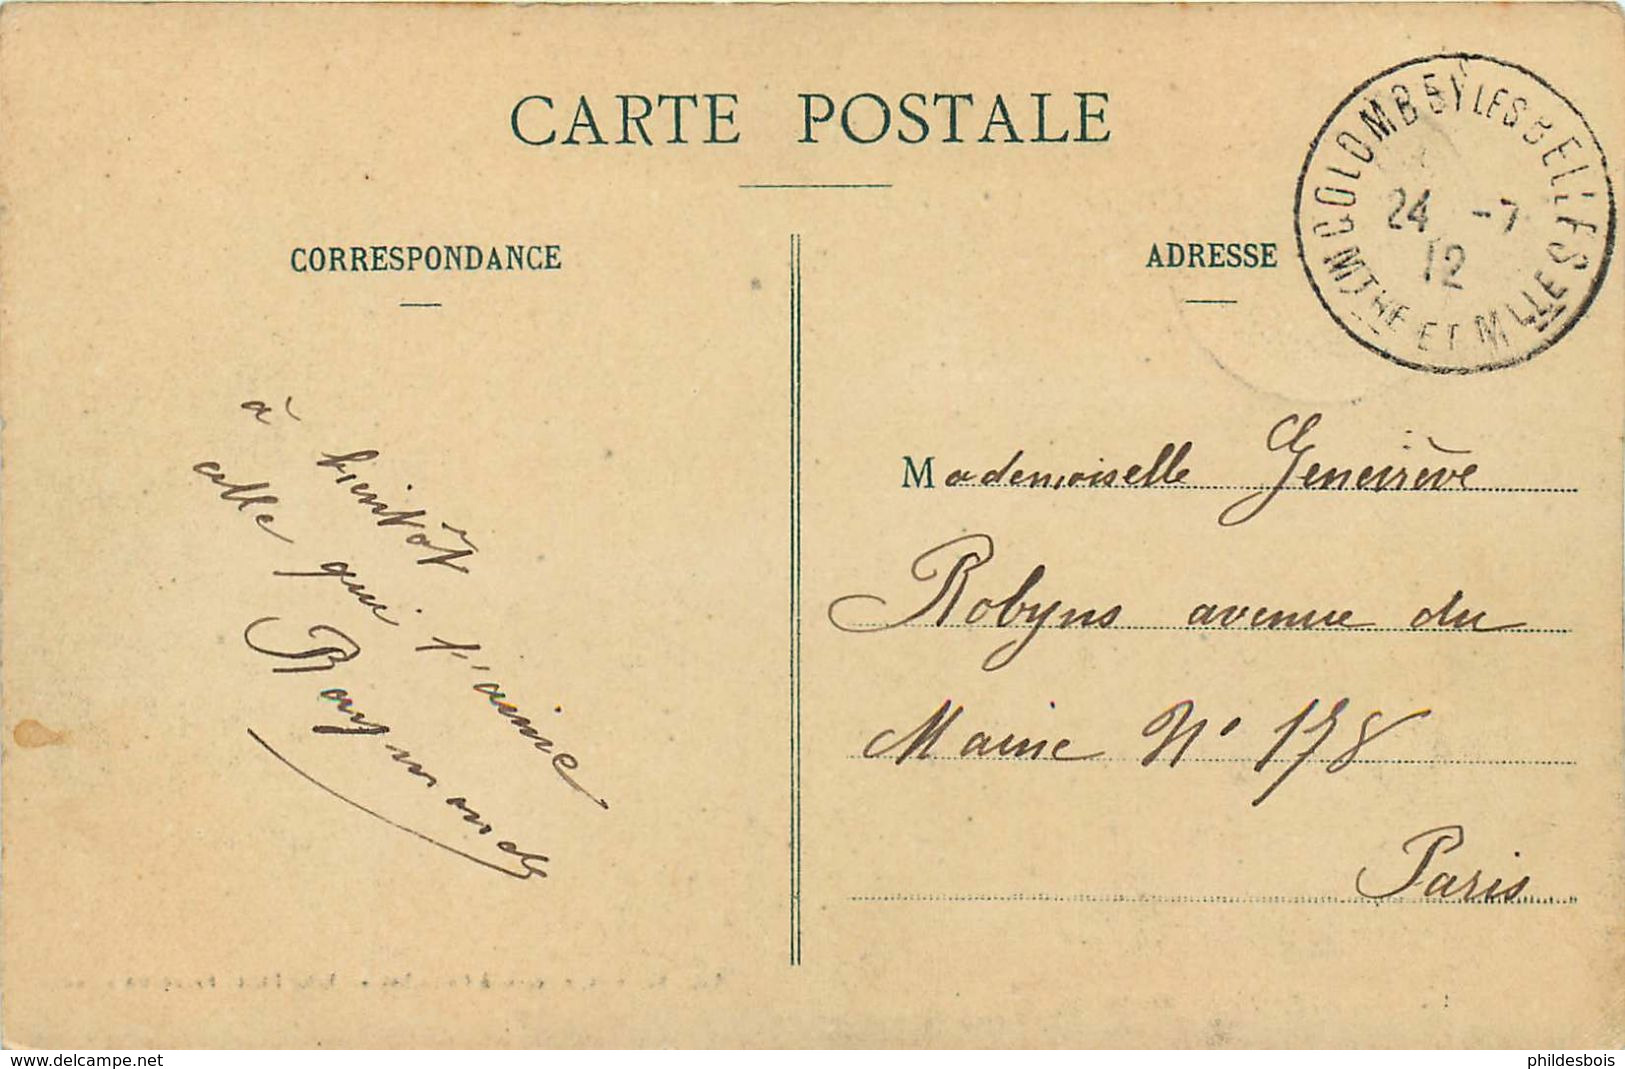 CARTE POSTALE
CORRESPONDANCE
à bientôt
celle qui t'aime
Raymonde
ADRESSE
COLOMBEY LES BELLES
24 -7
12
MTHE ET MLLE
Mademoiselle Geneviève
Robyns avenue du
Maine N° 178
Paris
www.delcampe.net
phildesbois